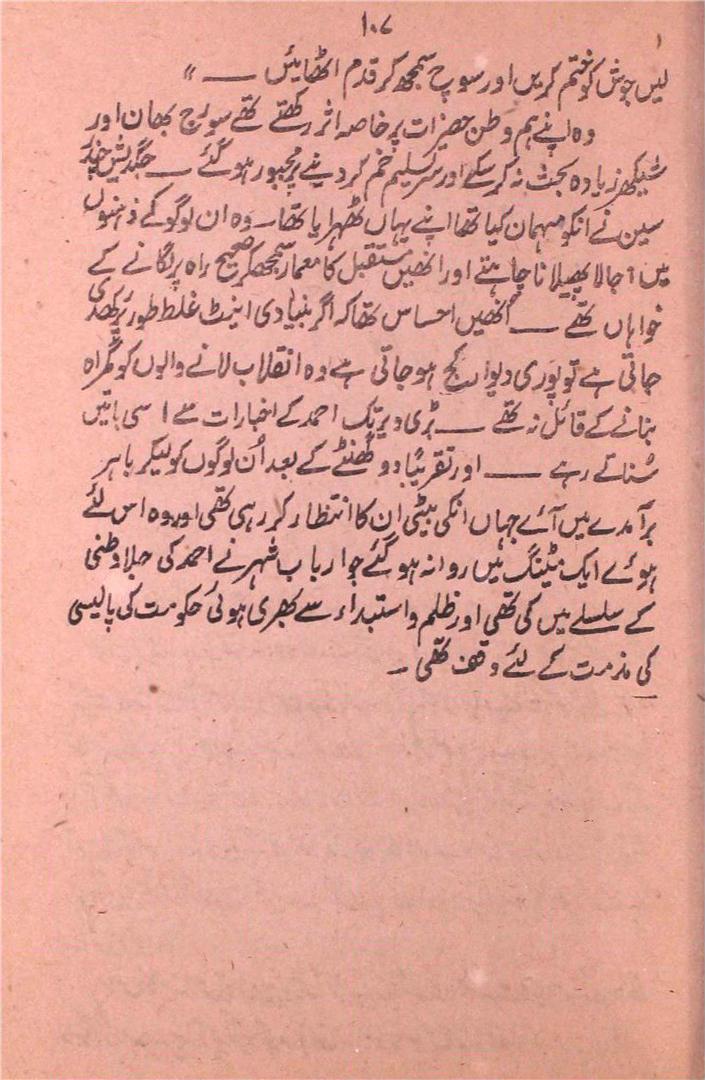 ۱۰۷
لیں جوش کو ختم کریں اور سوچ سمجھ کر قدم اٹھائیں ــــ "
وہ اپنے ہم وطن حضرات پر خاصہ اثر رکھتے تھے سورج بھان اور
شیکھر زیادہ بحث نہ کر سکے اور سر تسلیم خم کر دینے پر مجبور ہو گئے ــــ جگدیش چندر
سین نے انکو مہمان کیا تھا اپنے یہاں ٹھہرایا تھا۔ وہ ان لوگو کے ذہنوں
میں اجالا پھیلانا چاہتے اور انھیں مستقبل کا معمار سمجھ کر صحیح راہ پر لگانے کے
خواہاں تھے ــــ اُنھیں احساس تھا کہ اگر بنیادی اینٹ غلط طور پر رکھدی
جاتی ہے تو پوری دیوار کج ہو جاتی ہے وہ انقلاب لانے والوں کو گمراہ
بنانے کے قائل نہ تھے ــــ بڑی دیر تک احمد کے اخبارات سے اسی باتیں
سُناتے رہے ــــ اور تقریبًا دو گھنٹے کے بعد اُن لوگوں کو لیکر باہر
برآمدے میں آئے جہاں انکی بیٹی ان کا انتظار کر رہی تھی اور وہ اس لئے
ہوئے ایک مٹینگ میں روانہ ہو گئے جو ارباب شہر نے احمد کی جلا وطنی
کے سلسلے میں کی تھی اور ظلم و استبداء سے بھری ہوئی حکومت کی پالیسی
کی مذمت کے لئے وقف تھی ۔